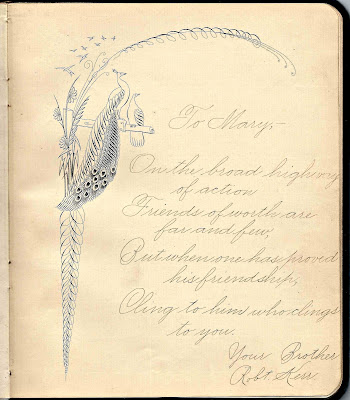 To Mary,-
On the broad highway
of action
Friends of worth are
far and few,
But when one has proved
his friendship,
Cling to him who clings
to you.
Your Brother
Robt. Kerr.